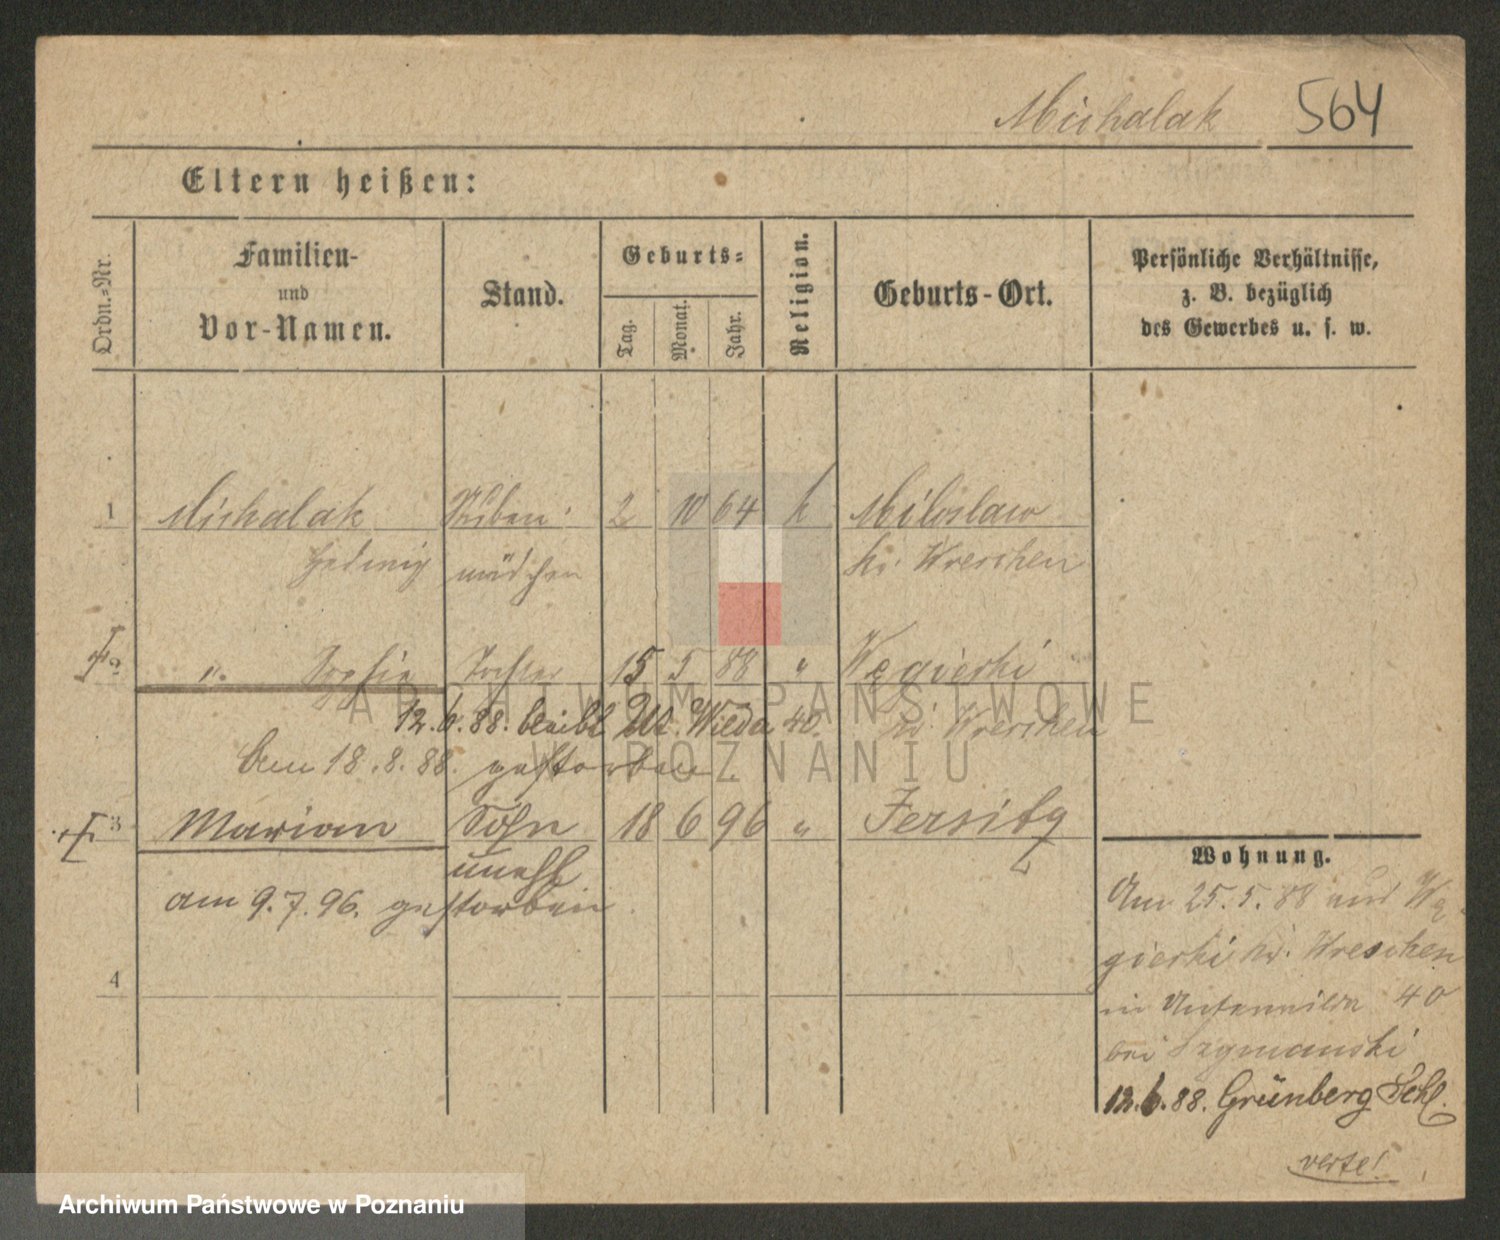 Michalak 564
Eltern heißen:
Ordn.-Nr.
Familien-
und
Vor-Namen.
Stand.
Geburts-
Tag.
Monat.
Jahr.
Religion.
Geburts-Ort.
Persönliche Verhältnisse,
z. B. bezüglich
des Gewerbes u. s. w.
1 Michalak Stuben- 2 10 64 k Miloslaw
Hedwig mädchen Kr. Wreschen
2 " Sophie Tochter 15 5 88 " Węgierki
12.6.88. bleibt Unt. Wilda 40. Kr. Wreschen
Am 18.8.88. gestorben
3 Marian Sohn 18 6 96 " Jersitz
unehl
am 9.7.96. gestorben
4
Wohnung.
Am 25.5.88 aus Wę-
gierki Kr. Wreschen
in Unterwilda 40
bei Szymanski
12.6.88. Grünberg Schl.
verte!
ARCHIWUM PAŃSTWOWE
W POZNANIU
Archiwum Państwowe w Poznaniu